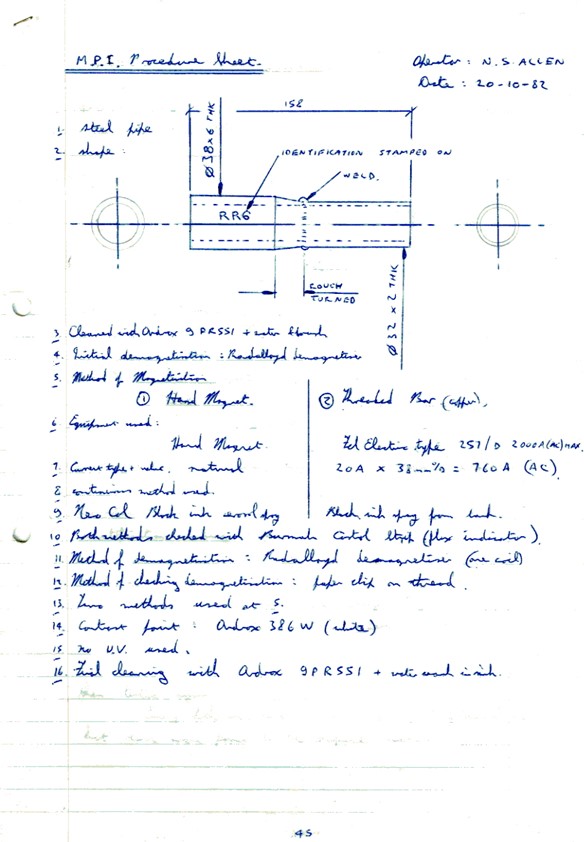 M.P.I. Procedure Sheet.
Operator : N. S. ALLEN
Date : 20-10-82
158
1. steel pipe
2. shape :
Ø38 x 6 THK
IDENTIFICATION STAMPED ON
WELD.
RR6
ROUGH
TURNED
Ø32 x 2 THK
3. Cleaned with Ardrox 9PR551 + water
4. Initial demagnetisation : Radalloyd demagnetiser
5. Method of Magnetisation
① Hand Magnet.
② Threaded Bar (copper).
6. Equipment used:
Hand Magnet.
Fel Electric type 257/D 2000A(AC)MAX.
7. Current type + value. natural
20A x 38mm = 760A (AC).
8. continuous method used.
9. Neo Col Black ink aerosol spray
Black ink spray from tank.
10. Both methods checked with Burmah Castrol Strip (flux indicator).
11. Method of demagnetisation : Radalloyd demagnetiser (one coil)
12. Method of checking demagnetisation : paper clip on thread.
13. Two methods used at 5.
14. Contrast paint : Ardrox 386W (white)
15. no U.V. used.
16. Final cleaning with Ardrox 9PR551 + water wash in sink.
45